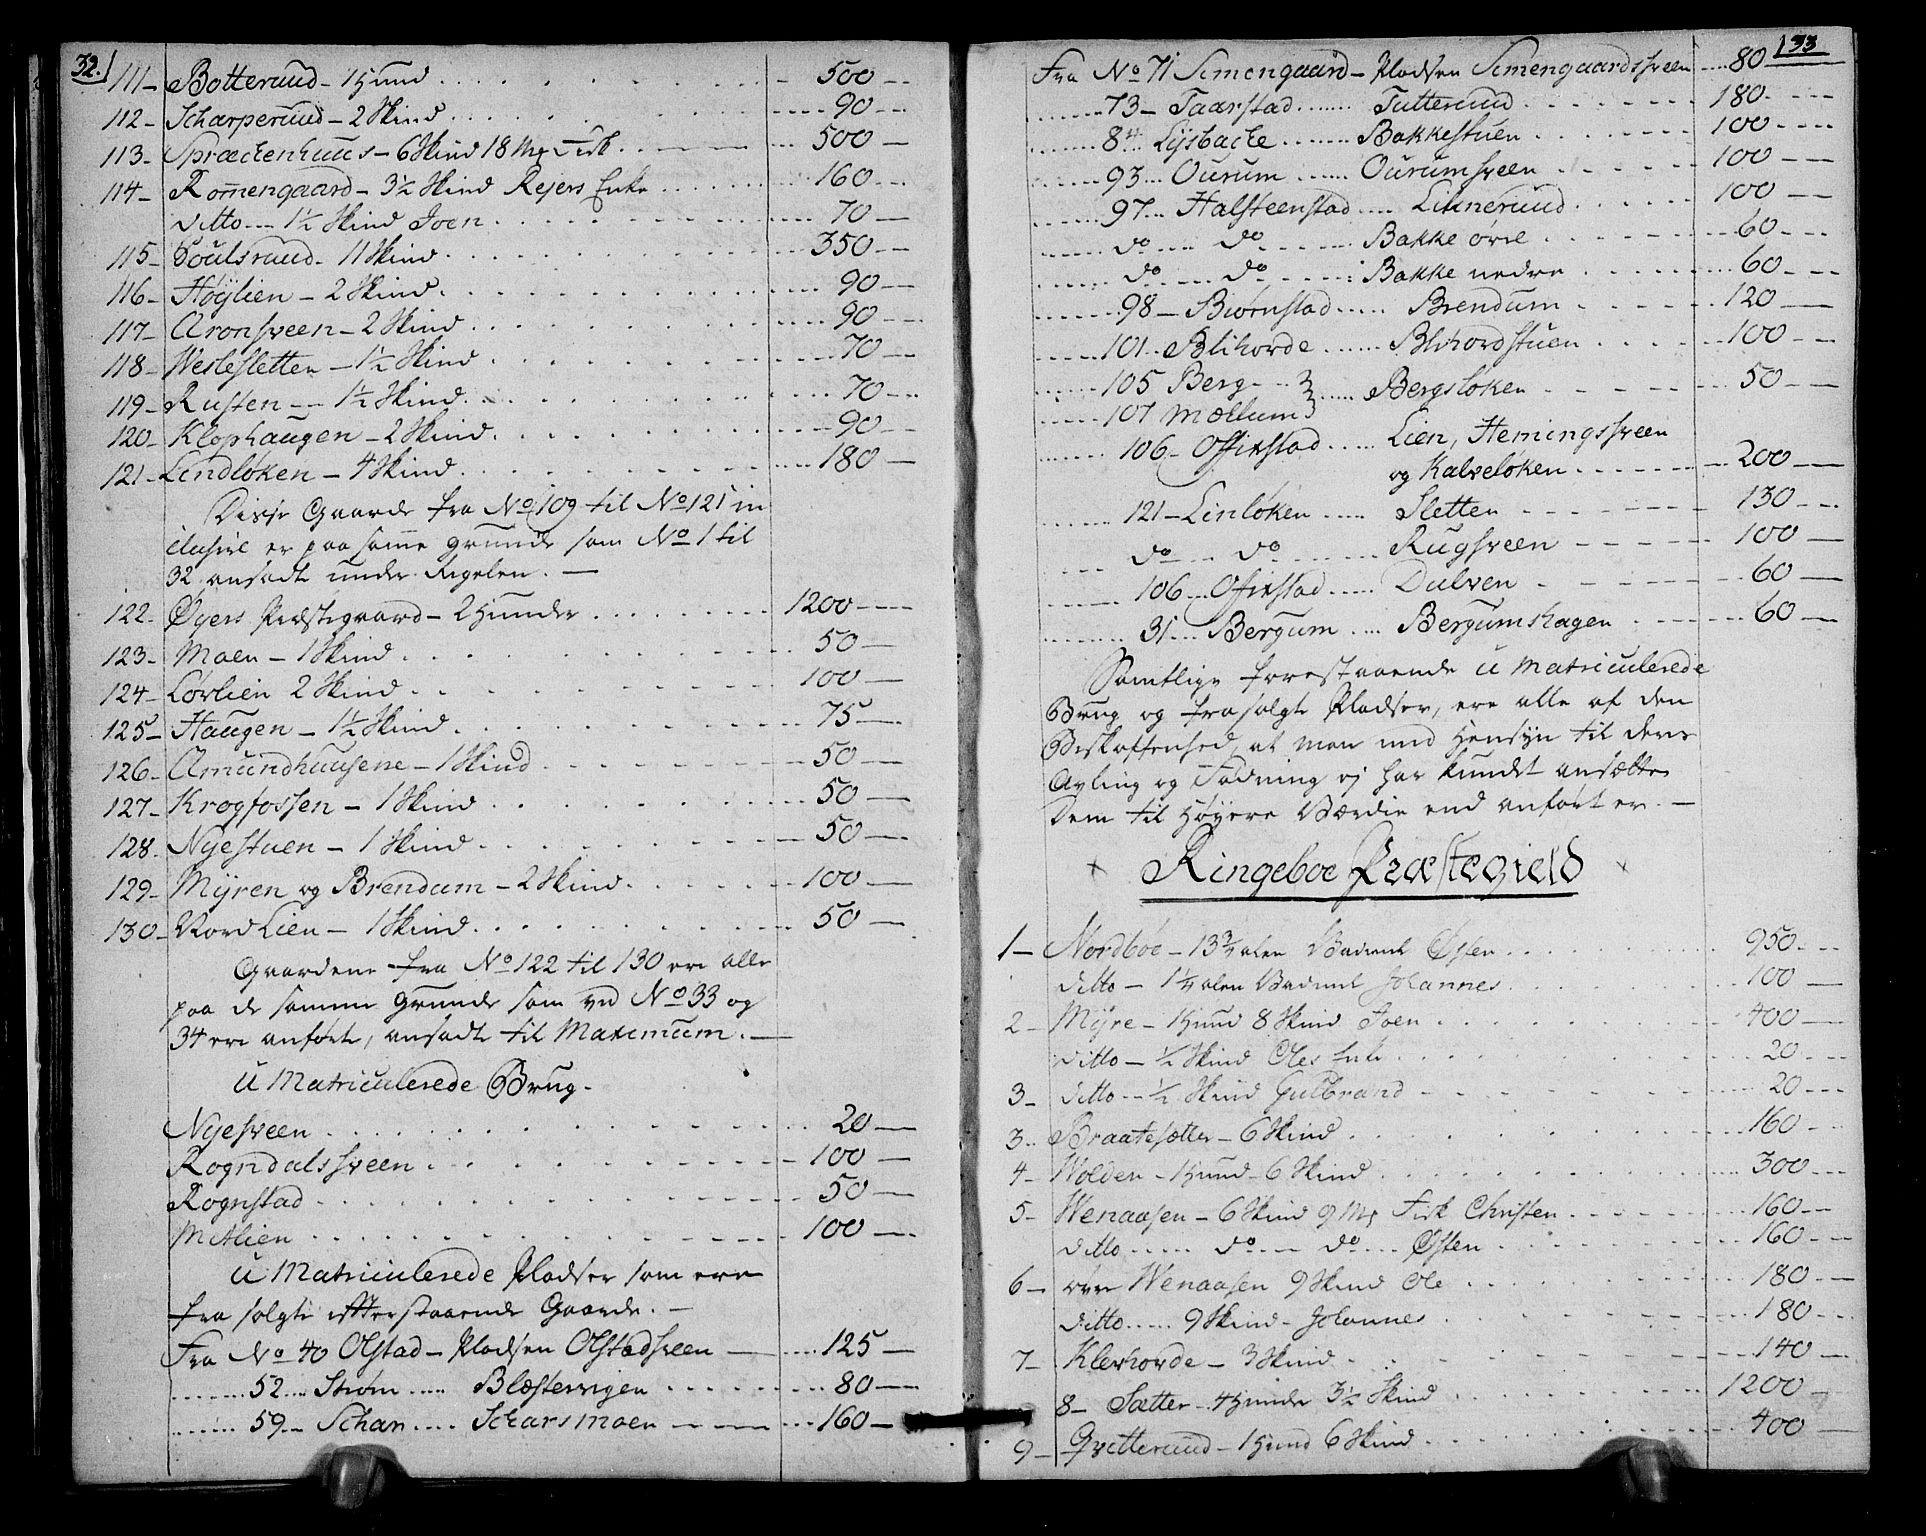 32.
111- Botterund - 1 Hund 500
112- Scharperund - 2 Skind 90
113- Spræckenhuus - 6 Skind 18 Mk Fisk 500
114- Romengaard - 3½ Skind Rejers Enke 160
ditto - 1½ Skind Joen 70
115- Poulsrund - 11 Skind 350
116- Høÿlien - 2 Skind 90
117- Aronsveen - 2 Skind 90
118- Weslesletten - 1½ Skind 70
119- Rusten - 1½ Skind 70
120- Klophaugen - 2 Skind 90
121- Lindløken - 4 Skind 180
Disse Gaarde fra No 109 til No 121 in
clusive er paa samme grunde som No 1 til
32 ansadt under Regelen. -
122- Øyers Præstegaard - 2 Hunder 1200
123- Moen - 1 Skind 50
124- Lørlien 2 Skind 100
125- Haugen - 1½ Skind 75
126- Amundhuusene - 1 Skind 50
127- Krogfossen - 1 Skind 50
128- Nyestuen - 1 Skind 50
129- Mÿren og Brendum - 2 Skind 100
130- Nord Lien - 1 Skind 50
Gaardene fra No 122 til 130 ere alle
paa de samme grunde som ved No 33 og
34 ere anførte, ansadt til Maximum. -
U Matriculerede Brug.
Nyesveen 20
Rogndalssveen 100
Rognstad 50
Mælien 100
U Matriculerede Pladser som ere
fra solgte efterstaaende Gaarde. -
Fra No 40 Olstad - Pladsen Olstadsveen 125
52 Strøm Blæstervigen 80
59 - Schar Scharsmoen 160
33
Fra No 71 Simengaard - Pladsen Simengaardssveen 80
73 - Taarstad Tutterund 180
84 Lysbacke Bakkestuen 100
93 Ourum Ourumsveen 100
97 Halsteenstad Linnerund 100
do do Bakke øvre 60
do do Bakke nedre 60
98 - Biørnstad Brendum 120
101 Blihovde Blihovdstuen 100
105 Berg Bergsløken 50
107 Mællum
106 - Offixstad Lien, Hemingssveen
og Kalveløken 200
121 - Linløken Sletten 130
do do Rugsveen 100
106 Offixstad Dulven 60
31 Bergum Bergumshagen 60
Samtlige forestaaende U Matriculerede
Brug og frasolgte Pladser, ere alle af den
Beskaffenhed, at man med Hensÿn til deres
Avling og Fødning ej har kundet ansætte
Dem til Høyere Værdie end anført er. -
Ringeboe Præstegield
1- Nordbøe - 13¾ alen Østen 950
ditto - 1¼ alen Johannes 100
2- Mÿre - 1 Hund 8 Skind Joen 400
ditto - ½ Skind Oles Enke 20
3- ditto - ½ Skind Gulbrand 20
3- Braatesætter - 6 Skind 160
4- Wolden - 1 Hund - 6 Skind 300
5- Wenaasen - 6 Skind 9 Mk Fisk Christen 160
ditto do do Østen 160
6- øvre Wenaasen 9 Skind Ole 180
ditto 9 Skind - Johannes 180
7- Klevhovde - 3 Skind 140
8- Sætter - 4 Hunder 3½ Skind 1200
9- Qvitterund - 1 Hund 6 Skind 400